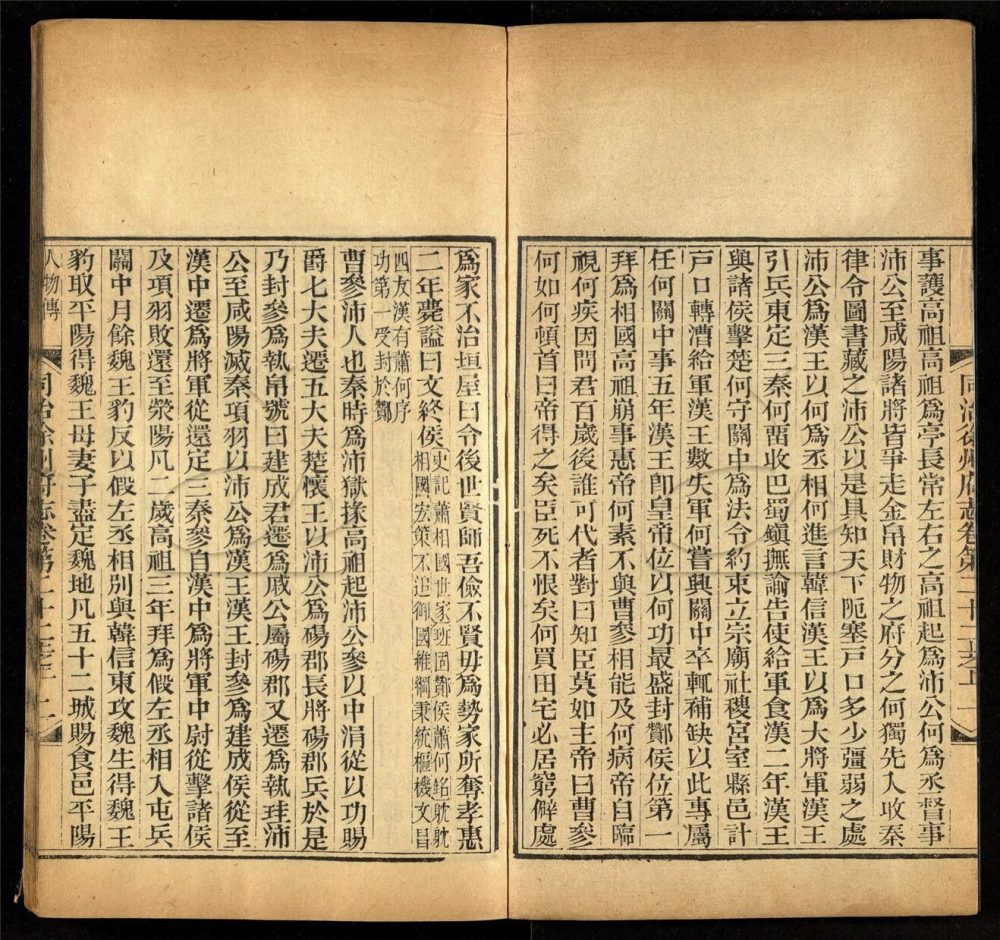 事護高祖高祖爲亭長常左右之高祖起爲沛公何爲丞督事
沛公至咸陽諸將皆爭走金帛財物之府分之何獨先入收秦
律令圖書藏之沛公以是具知天下阨塞戸口多少彊弱之處
沛公爲漢王以何爲丞相何進言韓信漢王以爲大將軍漢王
引兵東定三秦何畱收巴蜀鎭撫諭告使給軍食漢二年漢王
與諸侯擊楚何守關中爲法令約束立宗廟社稷宮室縣邑計
戸口轉漕給軍漢王數失軍何嘗興關中卒輒補缺以此專屬
任何關中事五年漢王卽皇帝位以何功最盛封酇侯位第一
拜爲相國高祖崩事惠帝何素不與曹參相能及何病帝自臨
視何疾因問君百歲後誰可代者對曰知臣莫如主帝曰曹參
何如何頓首曰帝得之矣臣死不恨矣何買田宅必居窮僻處
同治徐州府志卷第二十二之上
爲家不治垣屋曰令後世賢師吾儉不賢毋爲勢家所奪孝惠
二年薨諡曰文終侯
史記蕭相國世家班固酇侯蕭何銘耽耽
相國宏策不追御國維綱秉統樞機文昌
四友漢有蕭何序
功第一受封於酇
曹參沛人也秦時爲沛獄掾高祖起沛公參以中涓從以功賜
爵七大夫遷五大夫楚懷王以沛公爲碭郡長將碭郡兵於是
乃封參爲執帛號曰建成君遷爲戚公屬碭郡又遷爲執珪沛
公至咸陽滅秦項羽以沛公爲漢王漢王封參爲建成侯從至
漢中遷爲將軍從還定三秦參自漢中爲將軍中尉從擊諸侯
及項羽敗還至滎陽凡二歲高祖三年拜爲假左丞相入屯兵
關中月餘魏王豹反以假左丞相別與韓信東攻魏生得魏王
豹取平陽得魏王母妻子盡定魏地凡五十二城賜食邑平陽
人物傳
同治徐州府志卷第二十二之上 二